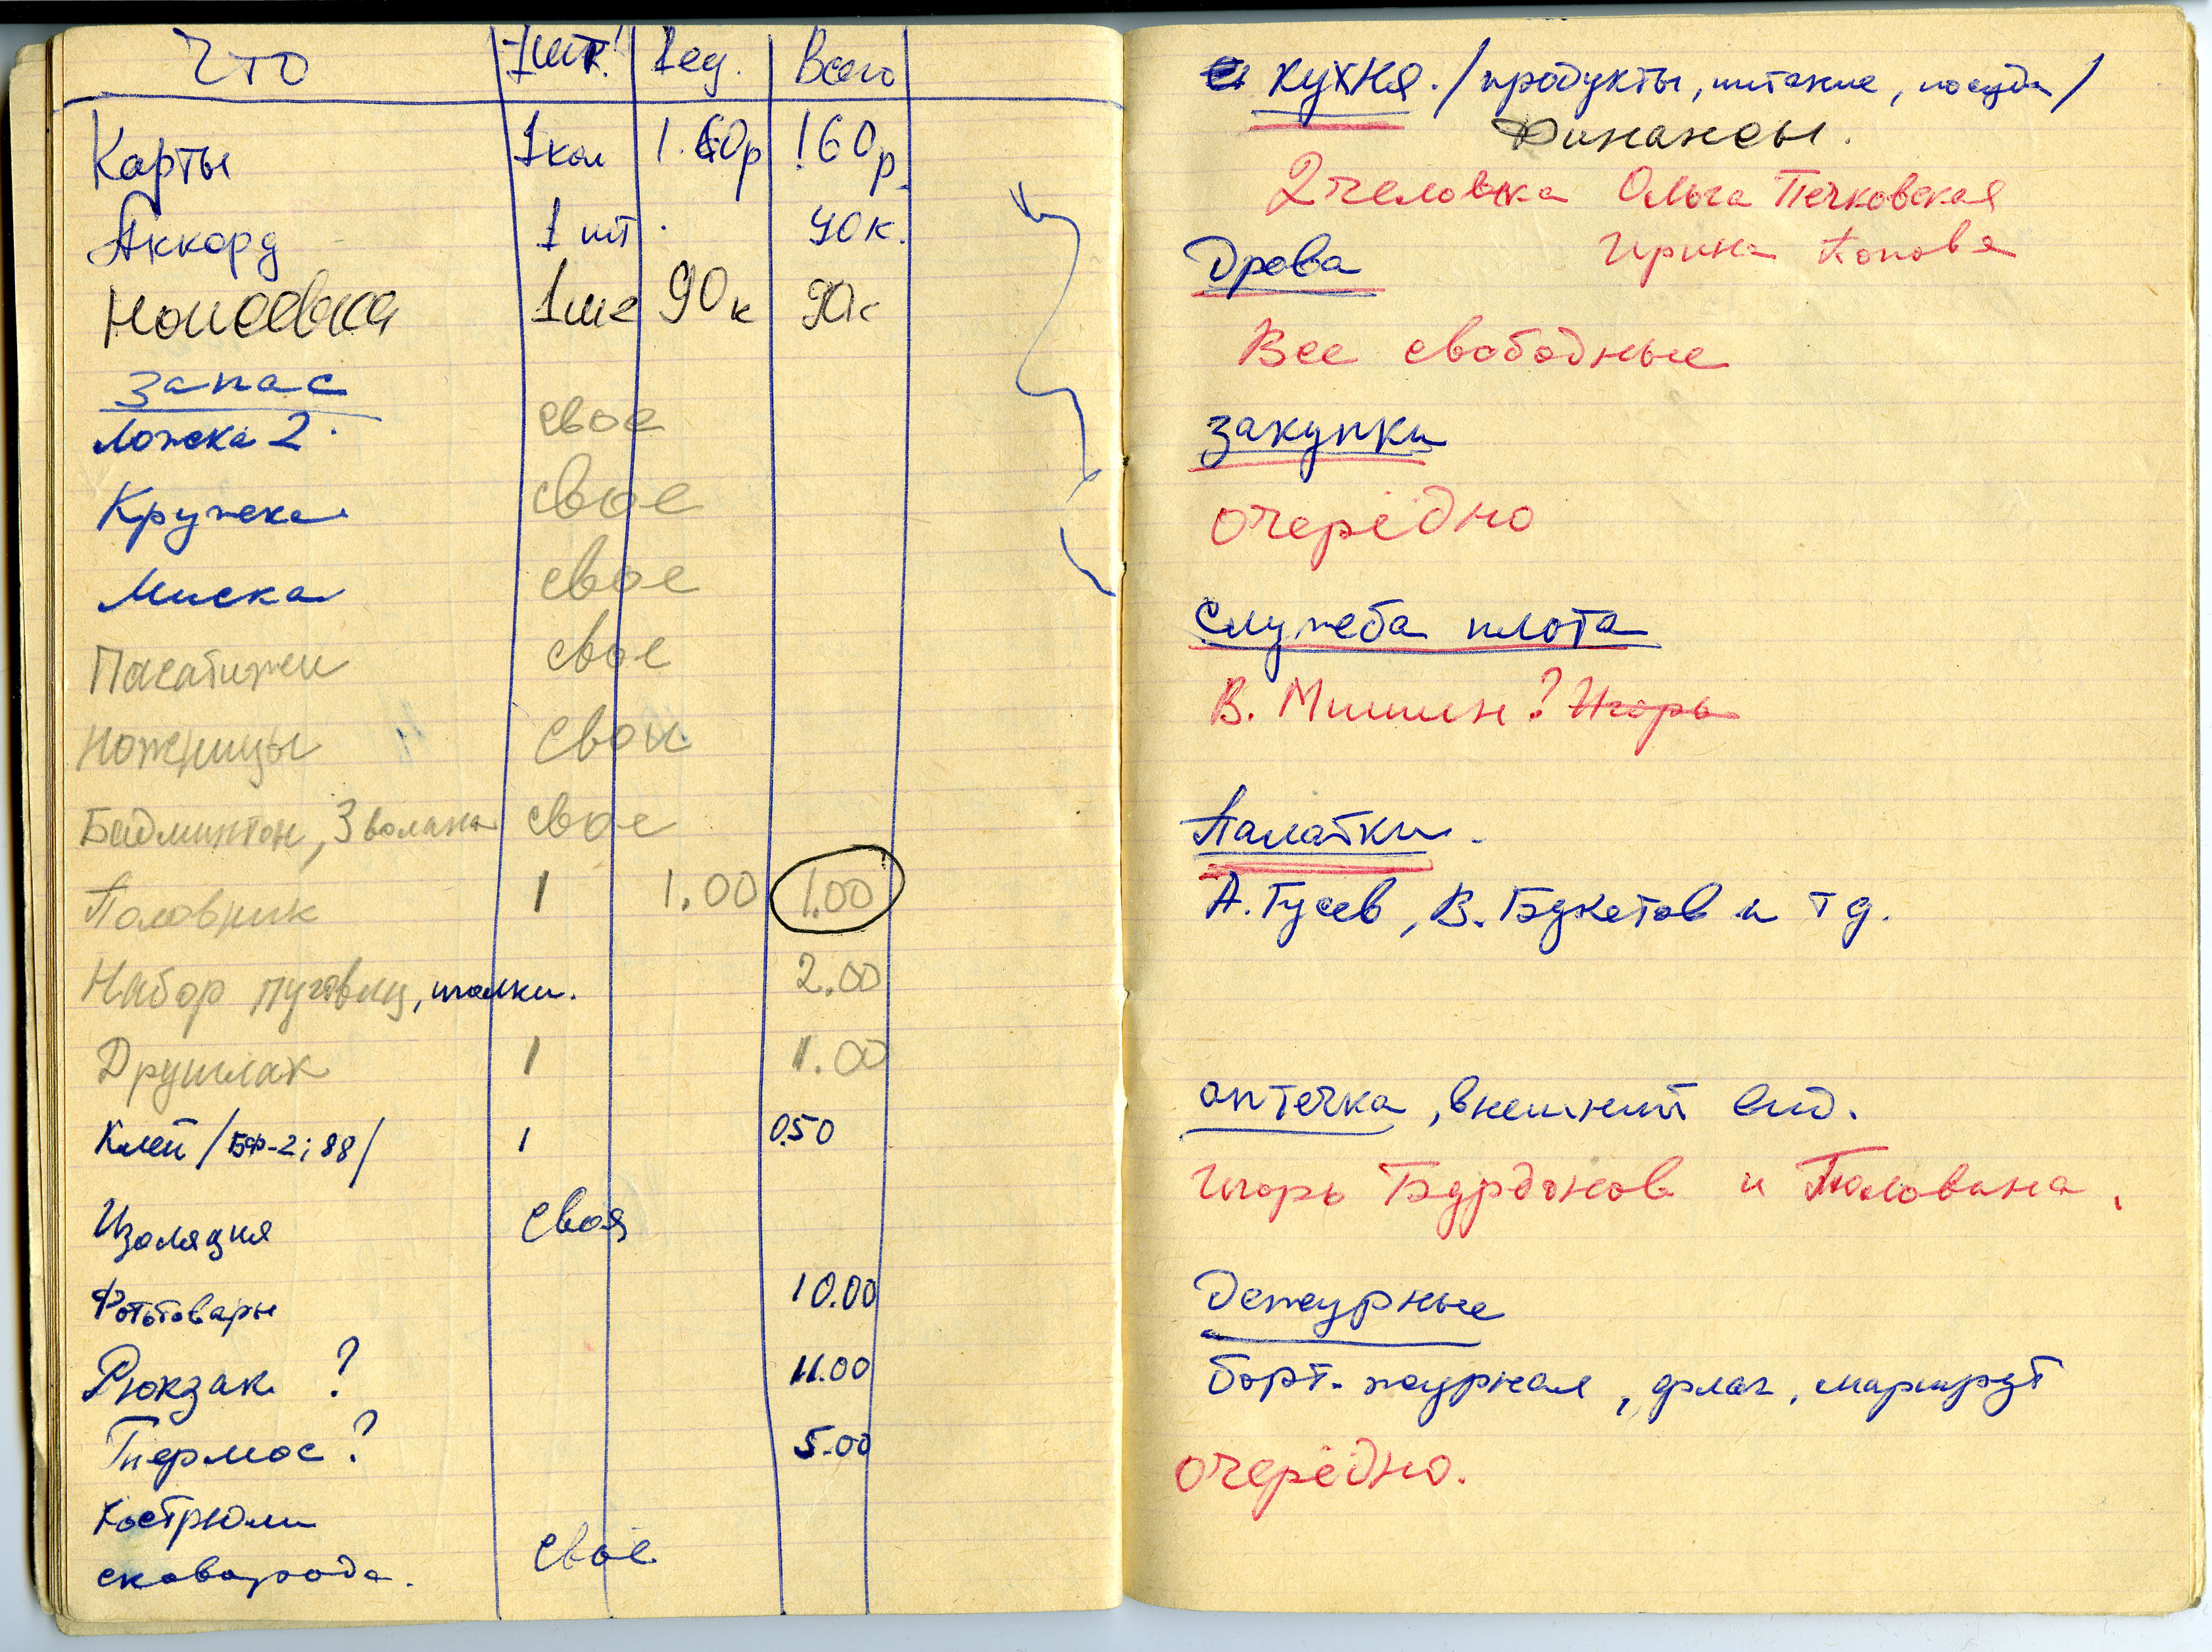 Что 1шт. 1ед. Всего
Карты 1кол 1.60р 1.60р.
Аккорд 1 шт. 40к.
Ножовка 90к 90к
Запас
Ложка 2. свое
Кружка свое
Миска свое
Пасатижи свое
Ножницы свои
Бадминтон, 3 волана свое
Половник 1 1.00 1.00
Набор пуговиц, иголки. 2.00
Друшлак 1 1.00
Клей /БФ-2; 88/ 1 0.50
Изоляция своя
Фототовары 10.00
Рюкзак ? 11.00
Термос ? 5.00
Кострюли
сковорода. свое
Кухня. /продукты, питание, посуда/
Финансы.
2 человека Ольга Печковская
Ирина Попова
Дрова
Все свободные
Закупки
очерёдно
Служба плота
В. Мишин? Игорь
Палатки.
А. Гусев, В. Букетов и тд.
аптечка, внешний вид.
Игорь Бурдонов и
Дежурные
борт-журнал, флаг, маршрут
очерёдно.